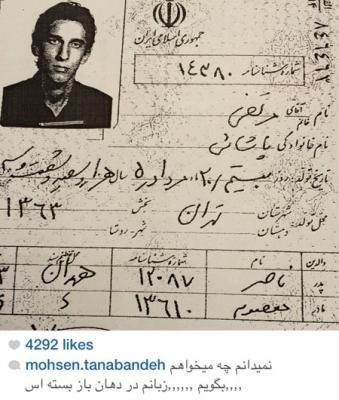 جمهوری اسلامی ایران
شماره شناسنامه ۱۴۳۸۰
نام آقای خانم مرتضی
نام خانوادگی پاشائی
تاریخ تولد: روز بیستم ۲۰ مرداد ۵ سال هزار و سیصد و شصت و سه
۱۳۶۳
محل تولد: شهرستان تهران بخش
دهستان شهر-روستا
والدین نام شماره شناسنامه
پدر ناصر ۱۲۰۸۷ همدان
مادر معصومه ۱۳۶۱۰
4292 likes
mohsen.tanabandeh نمیدانم چه میخواهم
بگویم ,,,,,,زبانم در دهان باز بسته اس,,,,